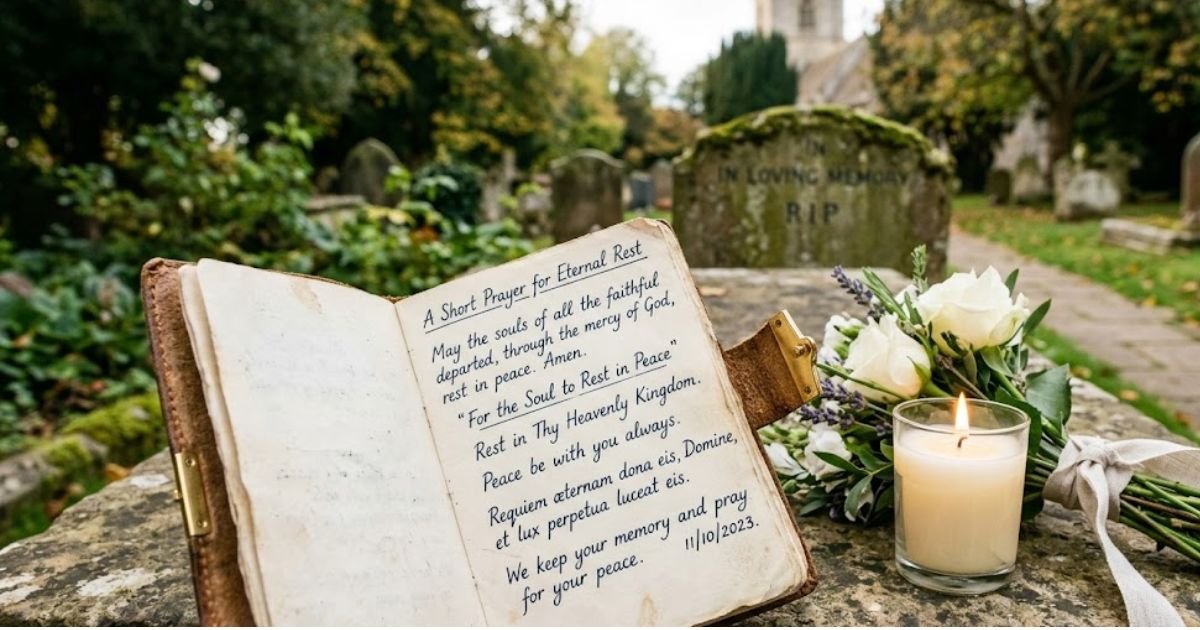 IN
IN LOVING MEMORY
RIP
A Short Prayer for Eternal Rest
May the souls of all the faithful
departed, through the mercy of God,
rest in peace. Amen.
"For the Soul to Rest in Peace"
Rest in Thy Heavenly Kingdom.
Peace be with you always.
Requiem æternam dona eis, Domine,
et lux perpetua luceat eis.
We keep your memory and pray
for your peace.
11/10/2023.